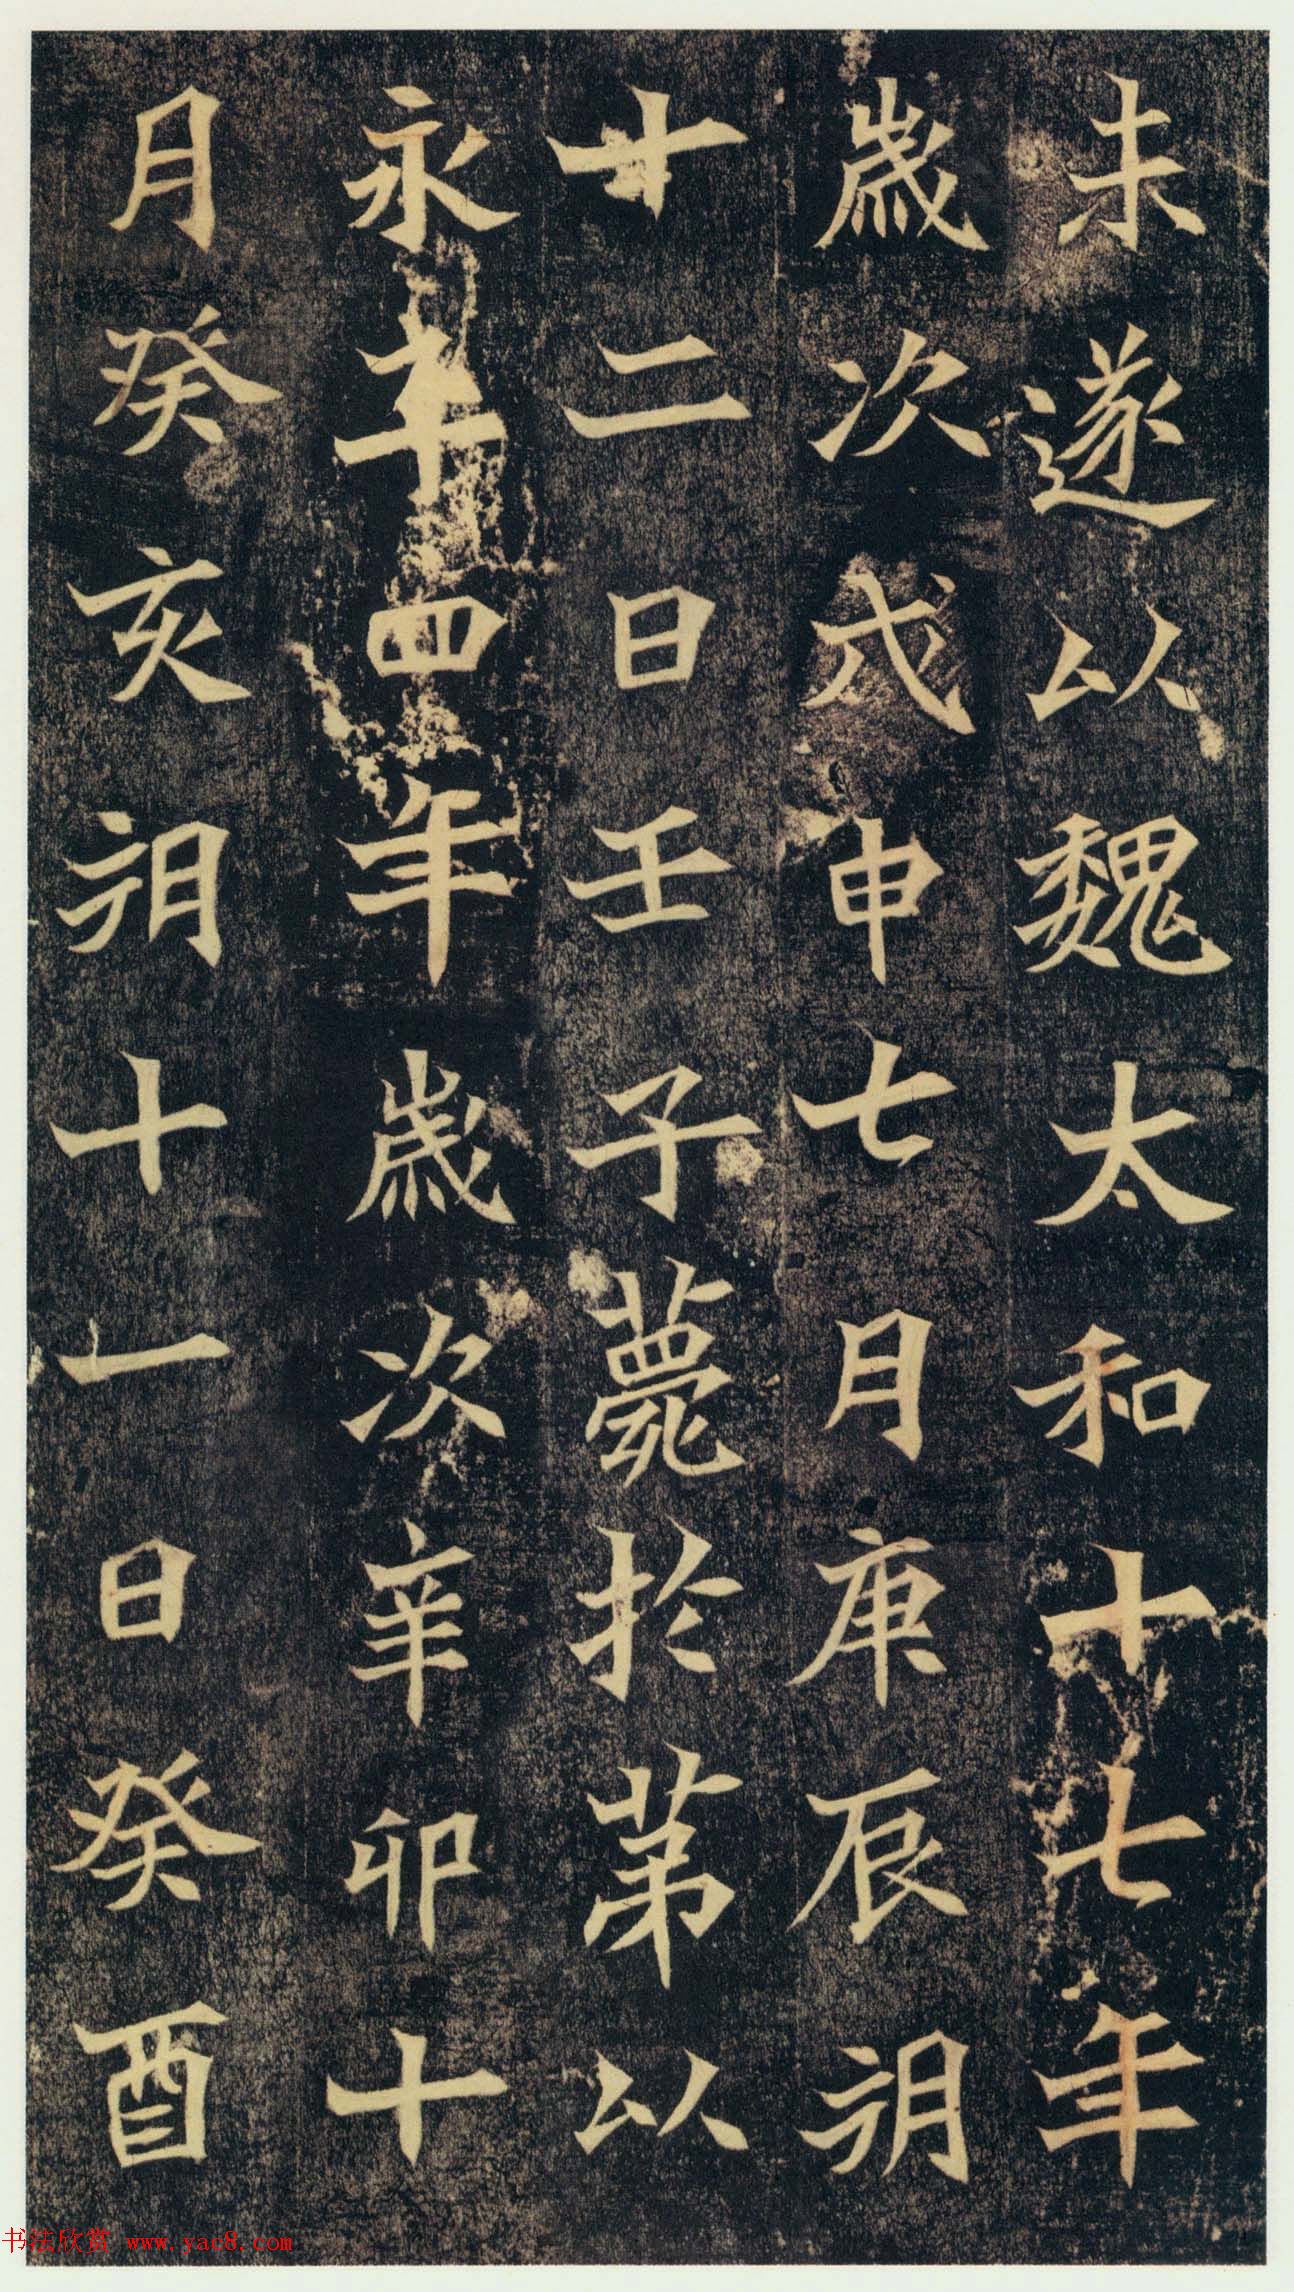 未遂以魏太和十七年
歲次戊申七月庚辰朔
十二日壬子薨於苐以
永平四年歲次辛卯十
月癸亥朔十一日癸酉
书法欣赏 www.yac8.com